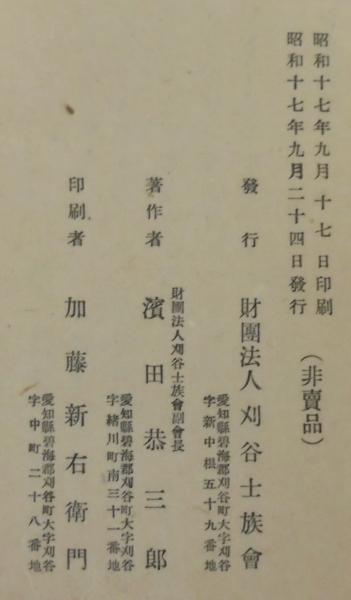 昭和十七年九月 十七 日印刷
昭和十七年九月二十四日發行
(非賣品)
發行 財團法人刈谷士族會
愛知縣碧海郡刈谷町大字刈谷
字新中根五十九番地
財團法人刈谷士族會副會長
著作者 濱田恭三郎
愛知縣碧海郡刈谷町大字刈谷
字緒川町南三十一番地
印刷者 加藤新右衛門
愛知縣碧海郡刈谷町大字刈谷
字中町二十八番地